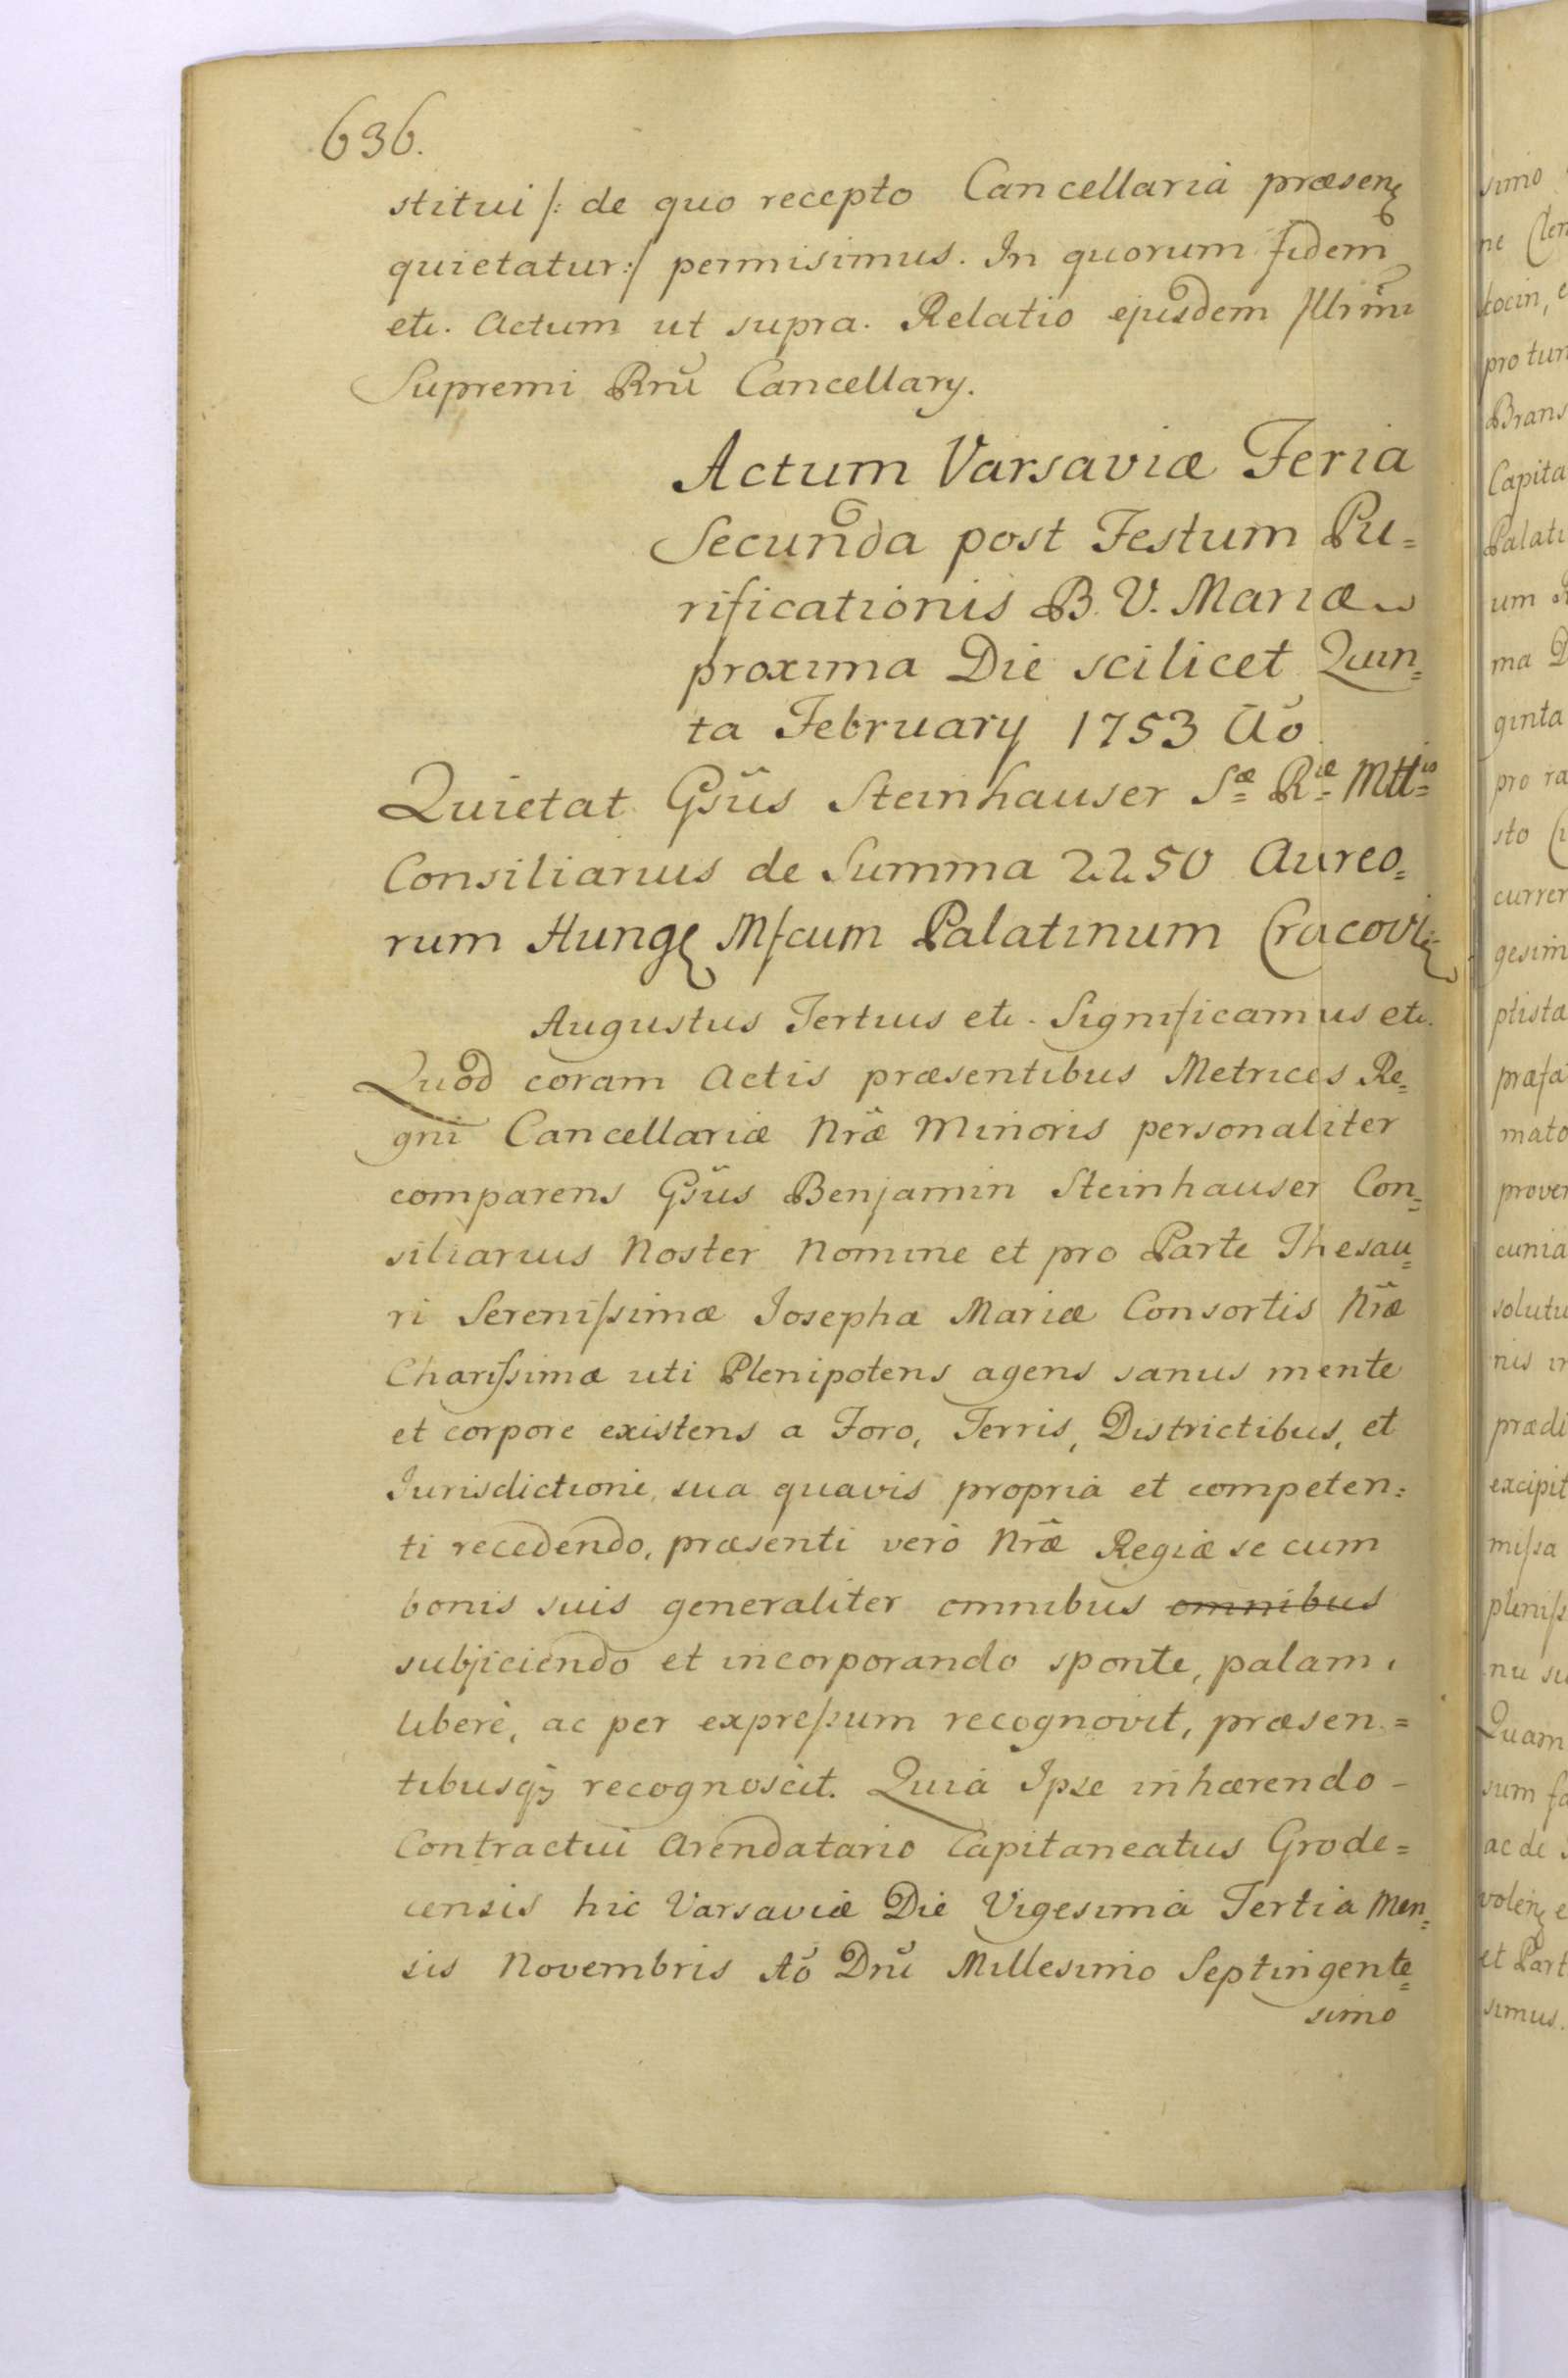 636.
stitui /: de quo recepto Cancellaria præsenȩ
quietatur :/ permisimus. In quorum fidem
etc. Actum ut supra. Relatio ejusdem Illrm̃i
Supremi Rñi Cancellary.
Actum Varsaviæ Feria
Secunda post Festum Pu=
rificationis B. V. Mariæ
proxima Die scilicet Quin=
ta February 1753 Aõ
Quietat Gsũs Steinhauser Sᵃᵉ Rᵃᵉ Mttⁱˢ
Consiliarius de Summa 2250 Aureo=
rum Hungȩ Mfcum Palatinum Cracovȩ
Augustus Tertius etc. Significamus etc.
Quod coram Actis præsentibus Metrices Re=
gni Cancellariæ Nræ̃ Minoris personaliter
comparens Gsũs Benjamin Steinhauser Con=
siliarius Noster Nomine et pro Parte Thesau=
ri Serenissimæ Josephæ Mariæ Consortis Nræ̃
Charissimæ uti Plenipotens agens sanus mente
et corpore existens a Foro, Terris, Districtibus, et
Jurisdictioni, sua quavis propria et competen=
ti recedendo, præsenti verò Nræ̃ Regiæ se cum
bonis suis generaliter omnibus omnibus
subjiciendo et incorporando sponte, palam,
liberè, ac per expressum recognovit, præsen=
tibusqȝ recognoscit. Quià Ipse inhærendo -
Contractui Arendatario Capitaneatus Grode=
censis hic Varsaviæ Die Vigesimâ Tertia Men=
sis Novembris Aõ Dnĩ Millesimo Septingente=
simo
simo
ne
tocin,
pro tun
Brans
Capita
Palati
um
ma
ginta
pro ra
sto
currer
gesim
ptista
præfa
mato
prover
cunia
solutu
nis in
prædi
excipit
missa
pleniss
nu su
Quam
sum fa
ac de
volenȩ e
et Part
simus.